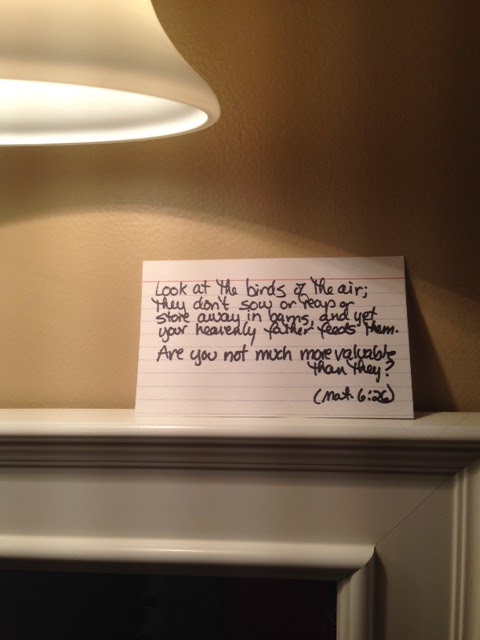 Look at the birds of the air;
they don't sow or reap or
store away in barns, and yet
your heavenly father feeds them.
Are you not much more valuable
than they?
(Mat. 6:26)